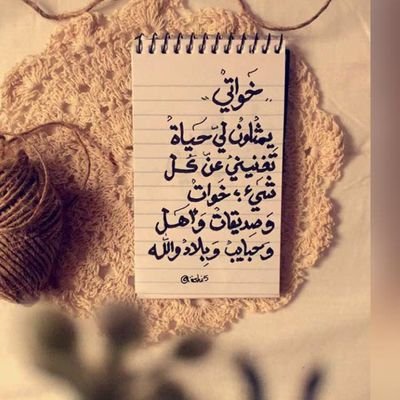 " خَواتيْ "
يمثلونْ ليّ حَياةْ
تغنينيْ عنّ كُلْ
شيَء ؛ خَواتْ
وَصَديقاتْ وَأهَلْ
وَحبايبْ وَبِلادْ واللّه